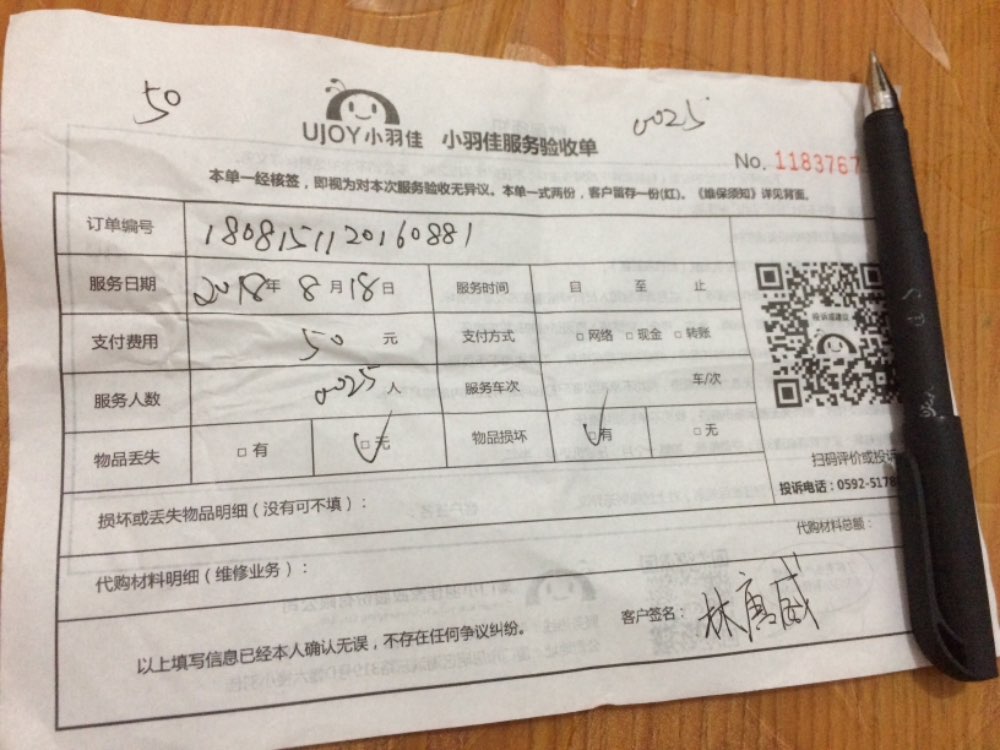 50
0025
UJOY小羽佳 小羽佳服务验收单
No. 1183767
本单一经核签，即视为对本次服务验收无异议。本单一式两份，客户留存一份(红)。《维保须知》详见背面。
订单编号 1808151120160881
服务日期 2018年 8月18日 服务时间 自 至 止
支付费用 50 元 支付方式 □网络 □现金 □转账
服务人数 0025人 服务车次 车/次
物品丢失 □有 □无 物品损坏 □有 □无
投诉或建议
扫码评价或投诉
投诉电话：0592-5178
损坏或丢失物品明细（没有可不填）：
代购材料明细（维修业务）：
代购材料总额：
客户签名：林唐威
以上填写信息已经本人确认无误，不存在任何争议纠纷。